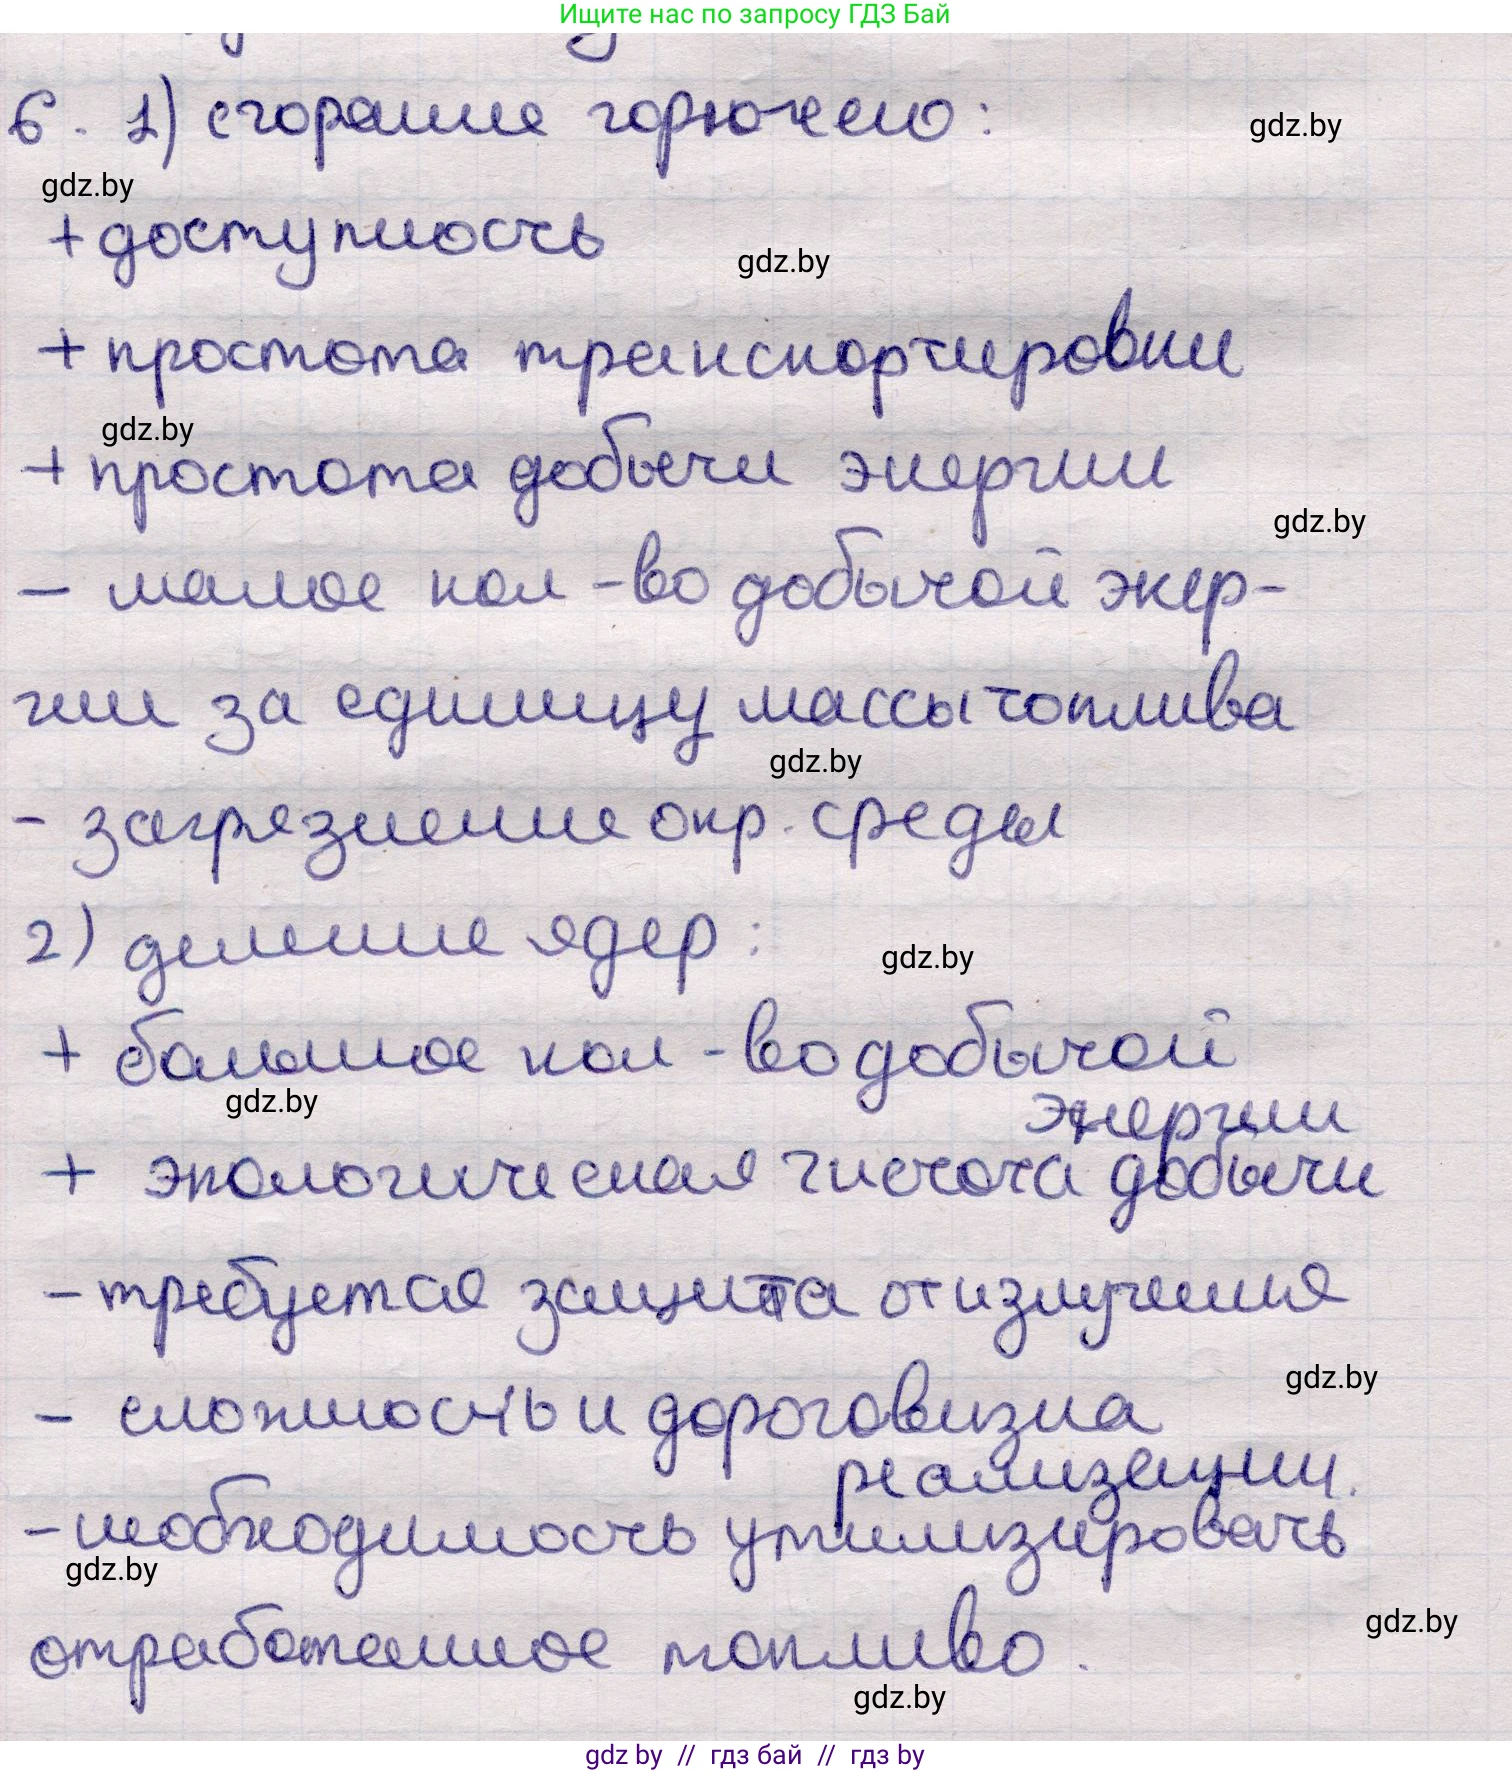 Ищите нас по запросу ГДЗ Бай
6. 1) сгорание горючего:
gdz.by
gdz.by
+ доступность
gdz.by
+ простота транспортировки
gdz.by
+ простота добычи энергии
gdz.by
- малое кол-во добычой энер-
гии за единицу массы топлива
gdz.by
- загрязнение окр. среды
2) деление ядер:
gdz.by
+ большое кол-во добычой
энергии
gdz.by
+ экологическая чистота добычи
- требуется защита от излучения
gdz.by
- сложность и дороговизна
реализации.
- необходимость утилизировать
gdz.by
отработанное топливо.
gdz.by
gdz.by
gdz by // гдз бай // гдз by